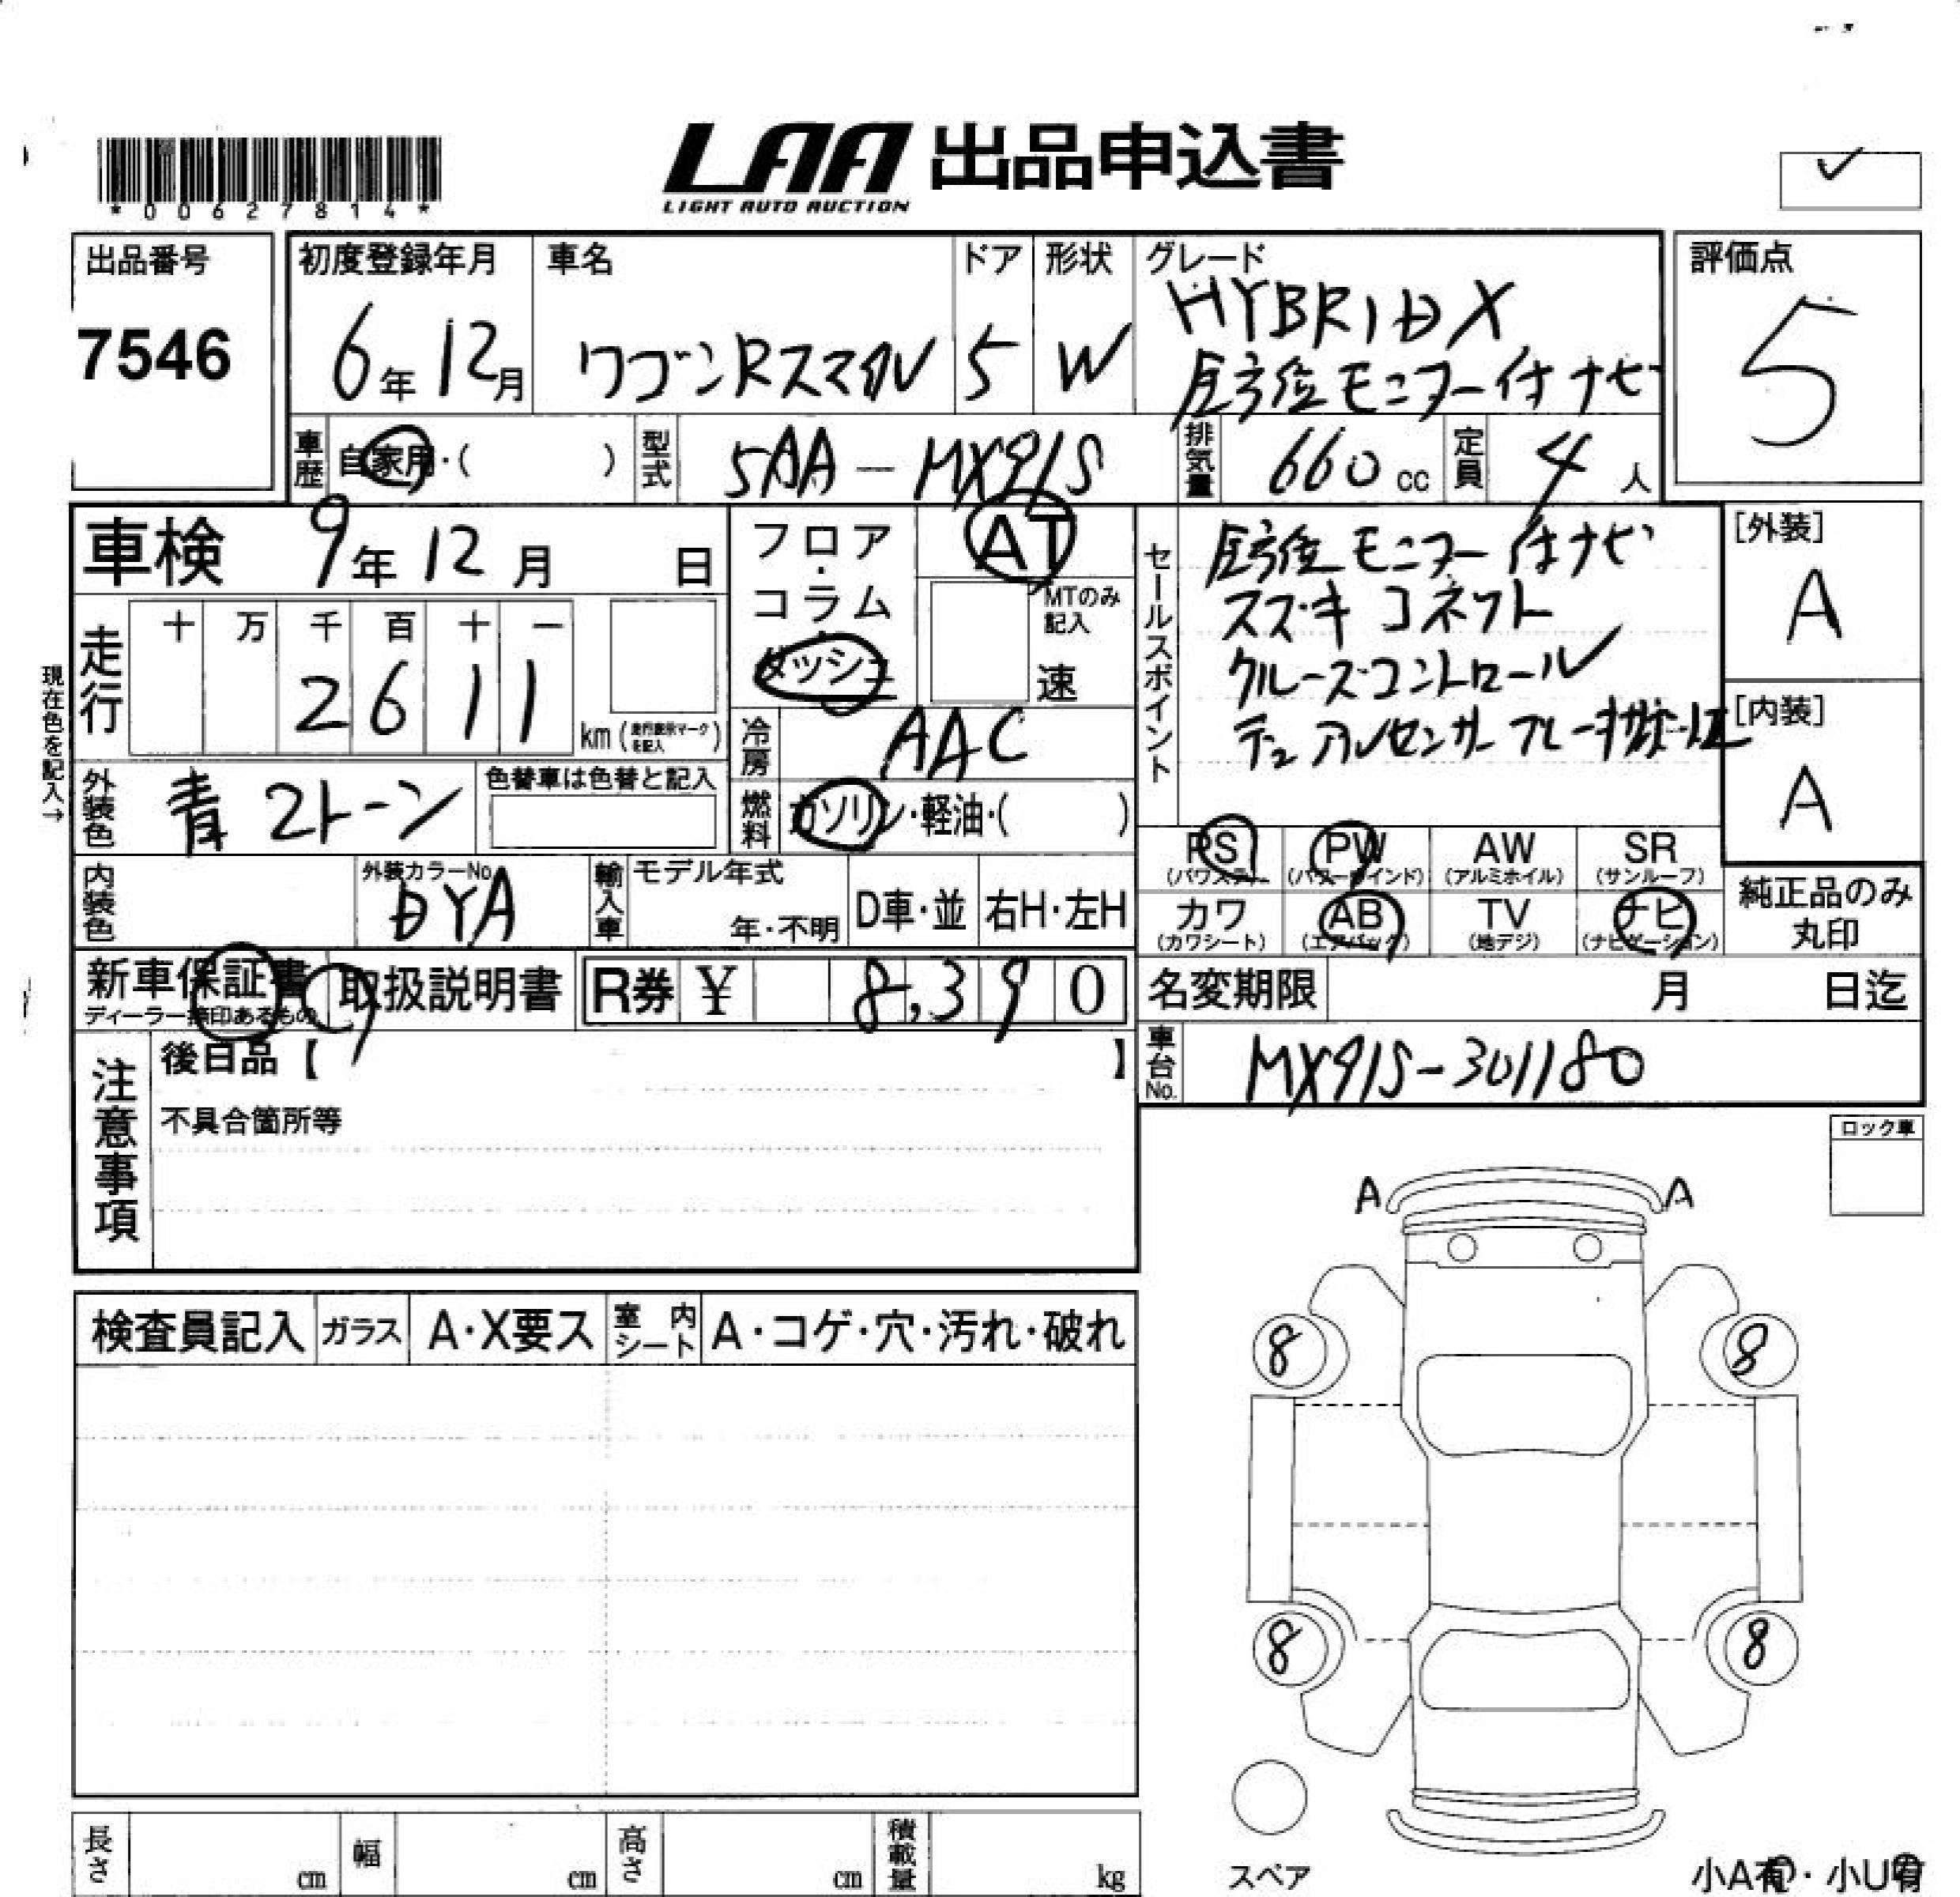 LAA 出品申込書
LIGHT AUTO AUCTION
*00627814*
✓
出品番号
7546
初度登録年月
6年12月
車名
ワゴンRスマイル
ドア
5
形状
W
グレード
HYBRID X
全方位モニター付ナビ
評価点
5
車歴
自家用・( )
型式
5AA-MX91S
排気量
660 cc
定員
4人
車検 9年12月 日
フロア・コラム・ダッシュ
AT
MTのみ記入
速
走行
十 万 千 百 十 一
2 6 1 1
km(走行表示マークを記入)
冷房
AAC
現在色を記入→
外装色
青2トーン
色替車は色替と記入
燃料
ガソリン・軽油・( )
セールスポイント
全方位モニター付ナビ
スズキコネクト
クルーズコントロール
デュアルセンサーブレーキサポートII
[外装]
A
[内装]
A
PS (パワステ)
PW (パワーウインド)
AW (アルミホイル)
SR (サンルーフ)
カワ (カワシート)
AB (エアバック)
TV (地デジ)
ナビ (ナビゲーション)
純正品のみ
丸印
内装色
外装カラーNo.
DYA
輸入車
モデル年式
年・不明
D車・並
右H・左H
新車保証書
ディーラー捺印あるもの
取扱説明書
R券 ¥ 8,390
名変期限 月 日迄
車台No.
MX91S-301180
注意事項
後日品【 】
不具合箇所等
ロック車
A A
検査員記入
ガラス
A・X要ス
室内シート
A・コゲ・穴・汚れ・破れ
8 8
8 8
長さ cm
幅 cm
高さ cm
積載量 kg
スペア
小A有・小U有